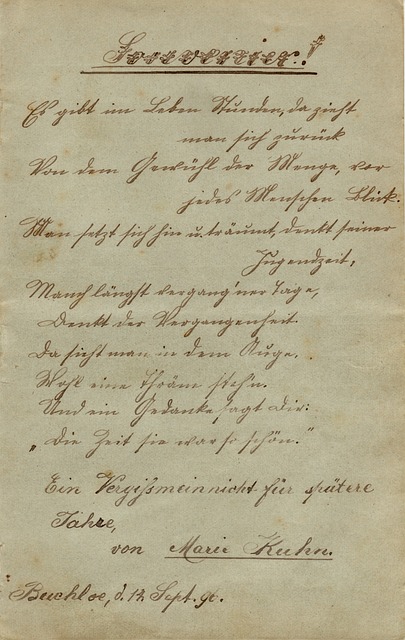 Souvenier!
Es gibt im Leben Stunden, da zieht
man sich zurück
Von dem Gewühl der Menge, vor
jedes Menschen Blick.
Man setzt sich hin u. träumt, denkt seiner
Jugendzeit,
Manch längst vergang'ner Tage,
Denkt der Vergangenheit.
Da sieht man in dem Auge.
Wohl eine Thräne steh'n.
Und ein Gedanke sagt Dir:
„Die Zeit sie war so schön."
Ein Vergißmeinnicht für spätere
Jahre,
von Marie Kuhn.
Buchloe, d. 12. Sept. 90.